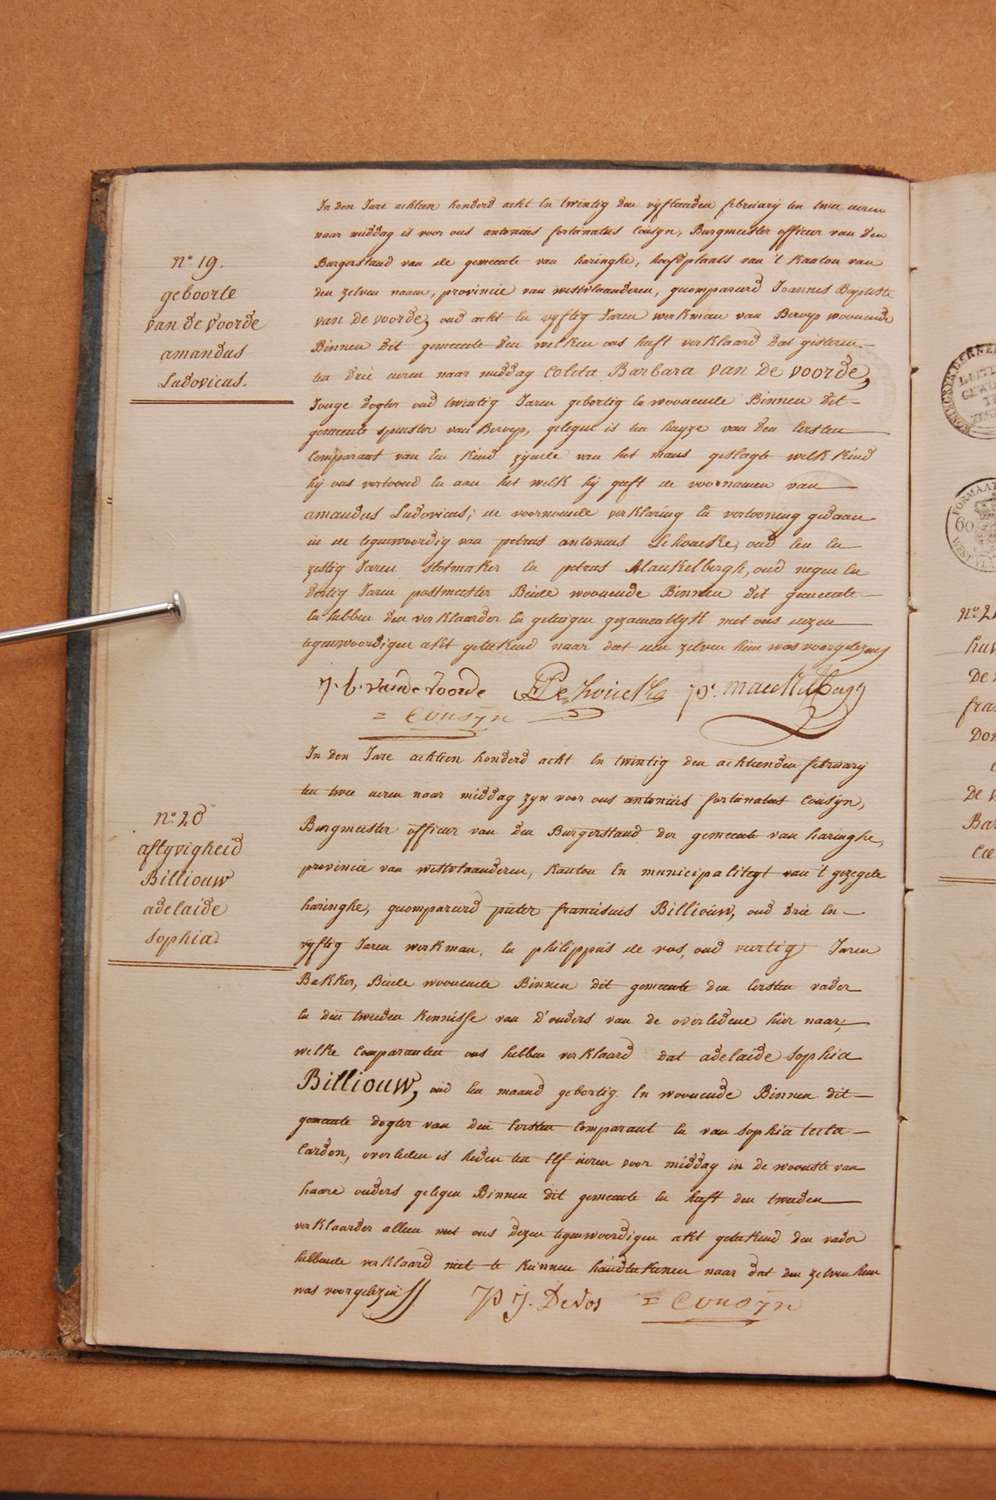 n° 19.
geboorte
van de voorde
amandus
Ludovicus.
In den Jare achtien honderd acht En twintig den vyftienden february ten twee uren
naar middag is voor ons antonius fortunatus Cousyn, Burgmeester officier van den
Burgerstand van de gemeente van haringhe, hoofdplaats van 't kanton van
den zelven naam, provincie van westvlaanderen, gecompareerd Joannes Baptiste
van de voorde, oud acht En vyftig Jaren werkman van Beroep woonende
Binnen dit gemeente den welken ons heeft verklaard dat gisteren
ten drie uren naar middag Coleta Barbara van De voorde,
Jonge dogter oud twintig Jaren gebortig En woonende Binnen dit
gemeente spinster van Beroep, gelegen is ten huyze van den Eersten
Comparant van Een kind zynde van het mans geslagte welk kind
hy ons vertoond En aan het welk hy geeft de voornamen van
amandus Ludovicus; de voornoemde verklaring En vertooning gedaan
in de tegenwoordig van petrus antonius Dehoucke, oud Een En
zestig Jaren slotmaker En petrus Mauckelbergh, oud negen En
dertig Jaren postmeester Beide woonende Binnen dit gemeente
En hebben den verklaarder En getuigen gezamentlyk met ons dezen
tegenwoordigen akt geteekend naar dat den zelven hun was voorgelezen
J. b. vande voorde P Dehoucke p. mauckelbergh
= Cousyn
n° 20
aflyvigheid
Billiouw
adelaide
sophia
In den Jare achtien honderd acht En twintig den achtienden february
ten twee uren naar middag zyn voor ons antonius fortunatus Cousyn,
Burgmeester officier van den Burgerstand der gemeente van haringhe,
provincie van westvlaanderen, kanton En municipaliteyt van 't gezegde
haringhe, gecompareerd pieter francisuis Billiouw, oud drie En
vyftig Jaren werkman, En philippus de vos, oud veertig Jaren
Bakker, Beide woonende Binnen dit gemeente den Eersten vader
En den tweeden kennisse van d'ouders van de overledene hier naar,
welke comparanten ons hebben verklaard dat adelaide sophia
Billiouw, oud Een maand gebortig En woonende Binnen dit
gemeente dogter van den Eersten comparant En van sophia
Cardon, overleden is heden ten Elf uren voor middag in de wooniste van
haare ouders gelegen Binnen dit gemeente En heeft den tweeden
verklaarder alleen met ons dezen tegenwoordigen akt geteekend den vader
hebbende verklaard niet te kunnen handteekenen naar dat den zelven hun
was voorgelezen
P J. De vos = Cousyn
n° 2
De
fra
Don
De v
Bar